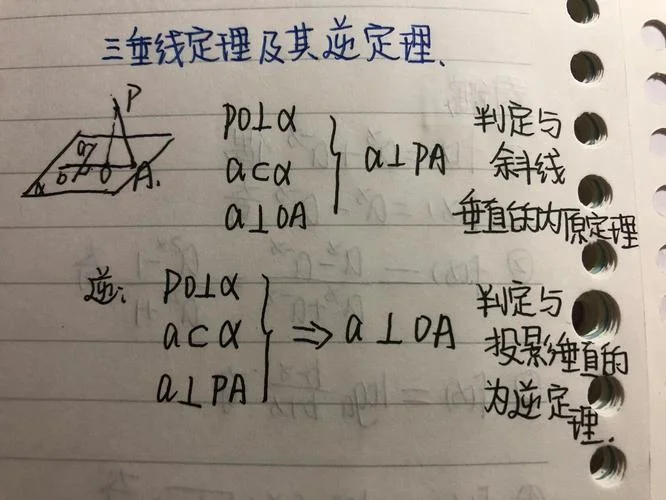 三垂线定理及其逆定理.
P
a
O
A.
α
PO⊥α
a⊂α
a⊥OA
} a⊥PA
判定与
斜线
垂直的为原定理
逆: PO⊥α
a⊂α
a⊥PA
} ⇒ a⊥OA
判定与
投影垂直的
为逆定
理.